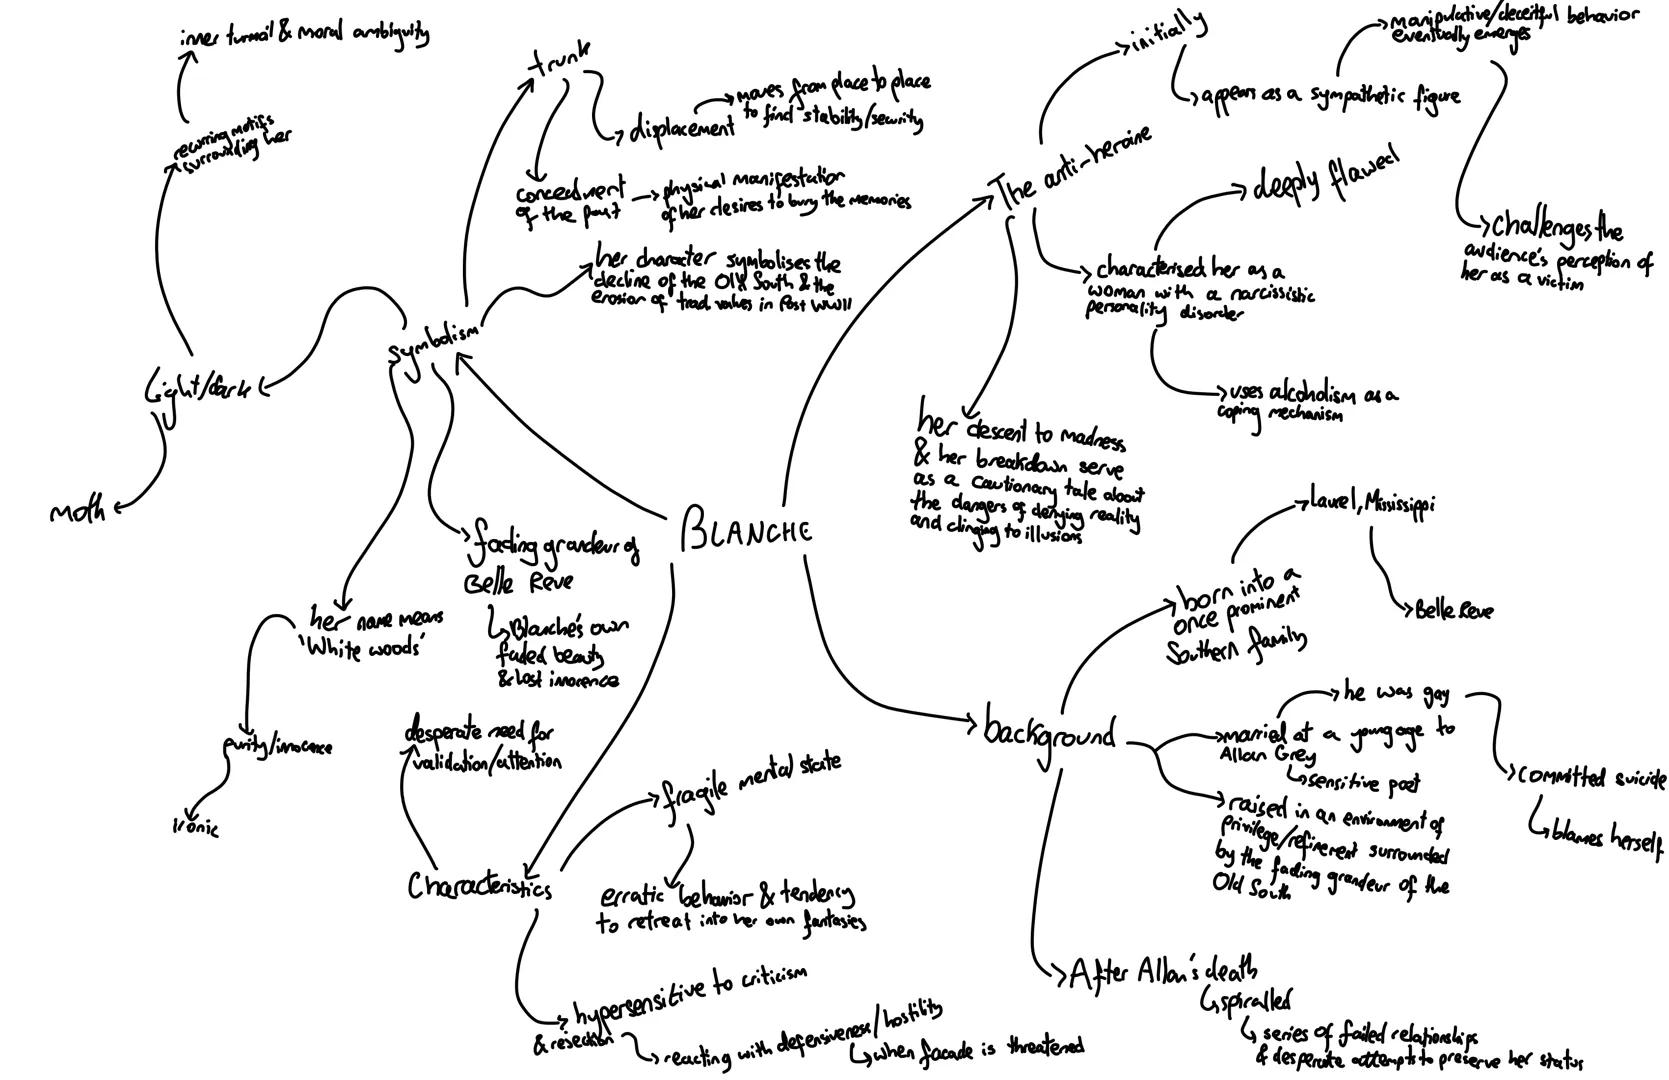 BLANCHE
symbolism
trunk
displacement
moves from place to place
to find stability/security
concealment
of the past
physical manifestation
of her desires to bury the memories
her character symbolises the
decline of the Old South & the
erosion of trad values in Post WWII
Light/dark
recurring motifs
surrounding her
inner turmoil & moral ambiguity
moth
her name means
'White woods'
purity/innocence
Ironic
fading grandeur of
Belle Reve
Blanche's own
faded beauty
& lost innocence
The anti-heroine
initially
appears as a sympathetic figure
manipulative/deceitful behavior
eventually emerges
Challenges the
audience's perception of
her as a victim
characterised her as a
woman with a narcissistic
personality disorder
deeply flawed
uses alcoholism as a
coping mechanism
her descent to madness
& her breakdown serve
as a cautionary tale about
the dangers of denying reality
and clinging to illusions
Characteristics
desperate need for
validation/attention
fragile mental state
erratic behavior & tendency
to retreat into her own fantasies
hypersensitive to criticism
& rejection
reacting with defensiveness/hostility
when facade is threatened
background
born into a
once prominent
Southern family
Laurel, Mississippi
Belle Reve
married at a young age to
Allan Grey
sensitive poet
he was gay
committed suicide
blames herself
raised in an environment of
privilege/refinement surrounded
by the fading grandeur of the
Old South
After Allan's death
spiralled
series of failed relationships
& desperate attempts to preserve her status